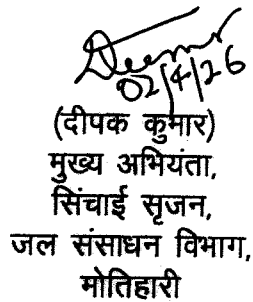 02/4/26
(दीपक कुमार)
मुख्य अभियंता,
सिंचाई सृजन,
जल संसाधन विभाग,
मोतिहारी